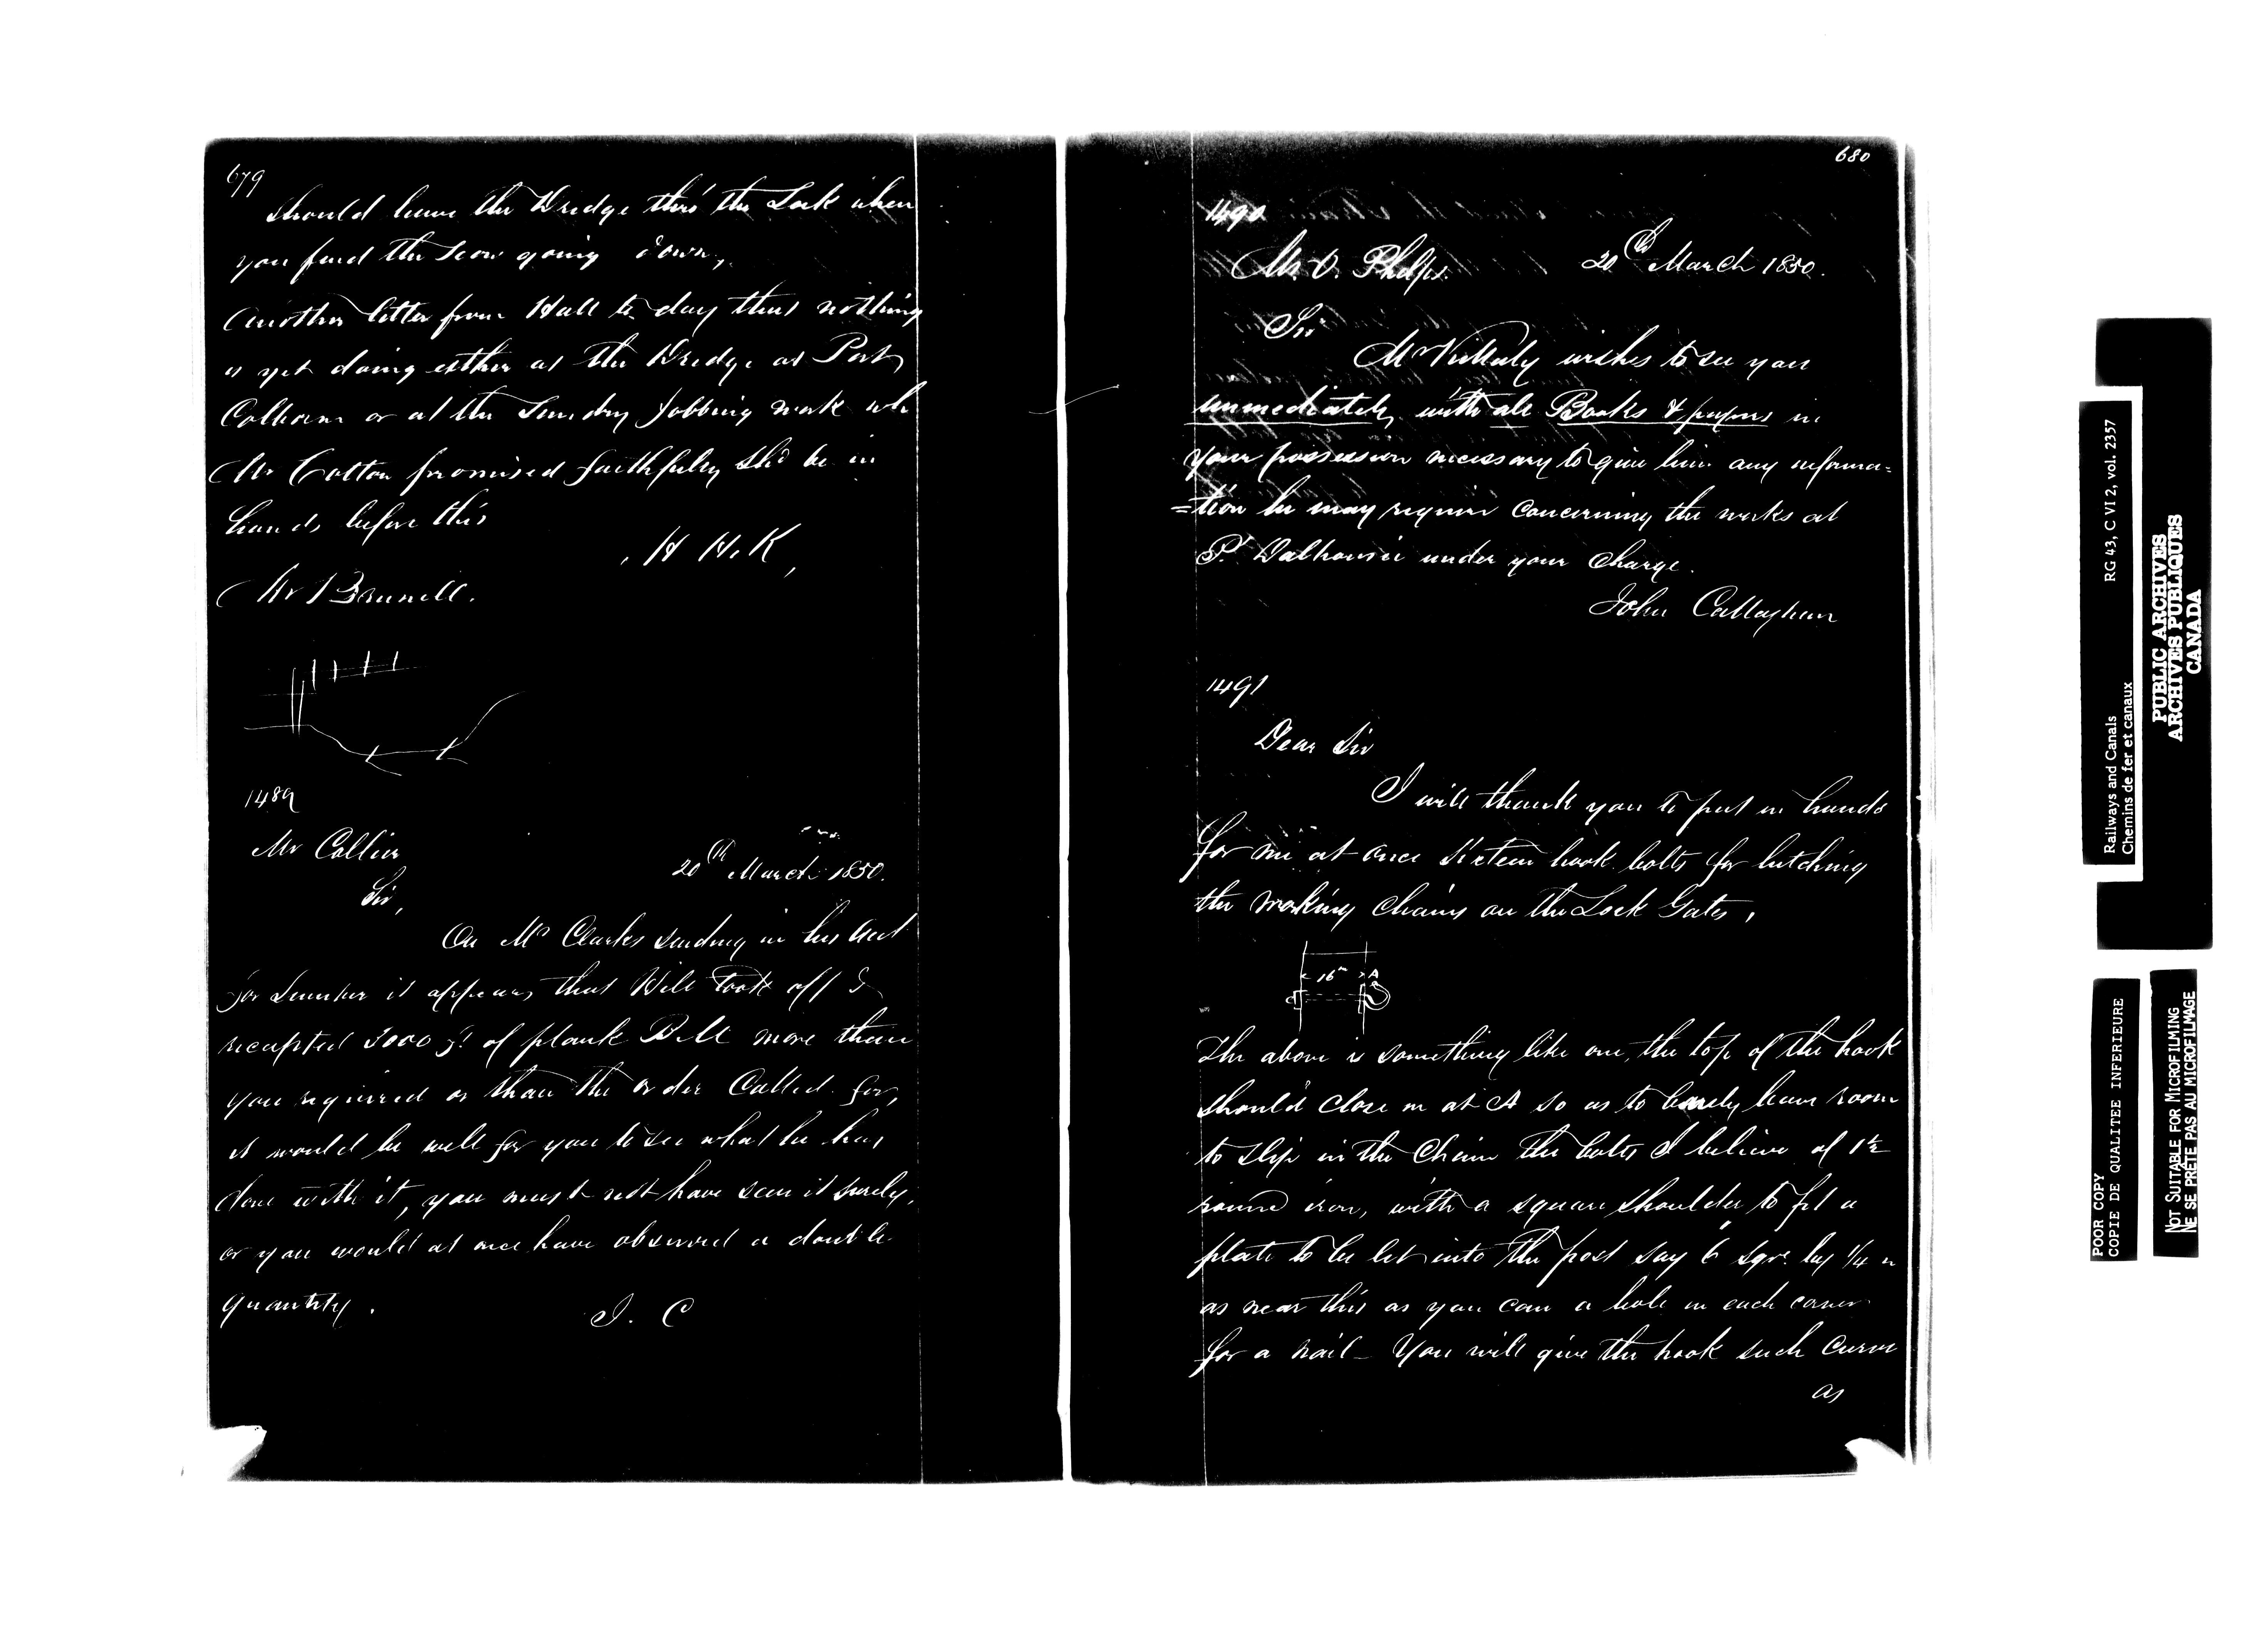 679
should leave the Dredge thro' the Lock when
you find the scow going down,
Another letter from Hall to day that nothing
is yet doing either at the Dredge at Port
Colborne or at the Sundry jobbing work wh
Mr Cotton promised faithfully sh'd be in
hands before this
H H. K,
Mr Brunell.
1489
Mr Collier
20th March 1850.
Sir,
On Mr Clarks sending in his acct
for Lumber it appears that Will took off &
receipted 3000 ft of plank B.M more than
you required or than the order Called for,
it would be well for you to see what he has
done with it, you must not have seen it surely,
or you would at once have observed a double
quantity.
J. C
680
1490
Mr O. Phelps.
20th March 1850.
Sir
Mr wishes to see you
immediately with all Books & papers in
your possession necessary to give him any informa=
=tion he may require concerning the works at
Pt Dalhousie under your charge.
John Callaghan
1491
Dear Sir
I will thank you to put in hands
for me at once Sixteen hook bolts for hitching
the working chains on the Lock Gates,
16" A
The above is something like one, the top of the hook
should close in at A so as to barely leave room
to slip in the Chain the bolts I believe of 1½
round iron, with a square shoulder to fit a
plate to be let into the post say 6" sqre by ¼ "
as near this as you can a hole in each corner
for a nail - You will give the hook such curve
as
Railways and Canals
Chemins de fer et canaux
RG 43, C VI 2, vol. 2357
PUBLIC ARCHIVES
ARCHIVES PUBLIQUES
CANADA
POOR COPY
COPIE DE QUALITEE INFERIEURE
NOT SUITABLE FOR MICROFILMING
NE SE PRÊTE PAS AU MICROFILMAGE